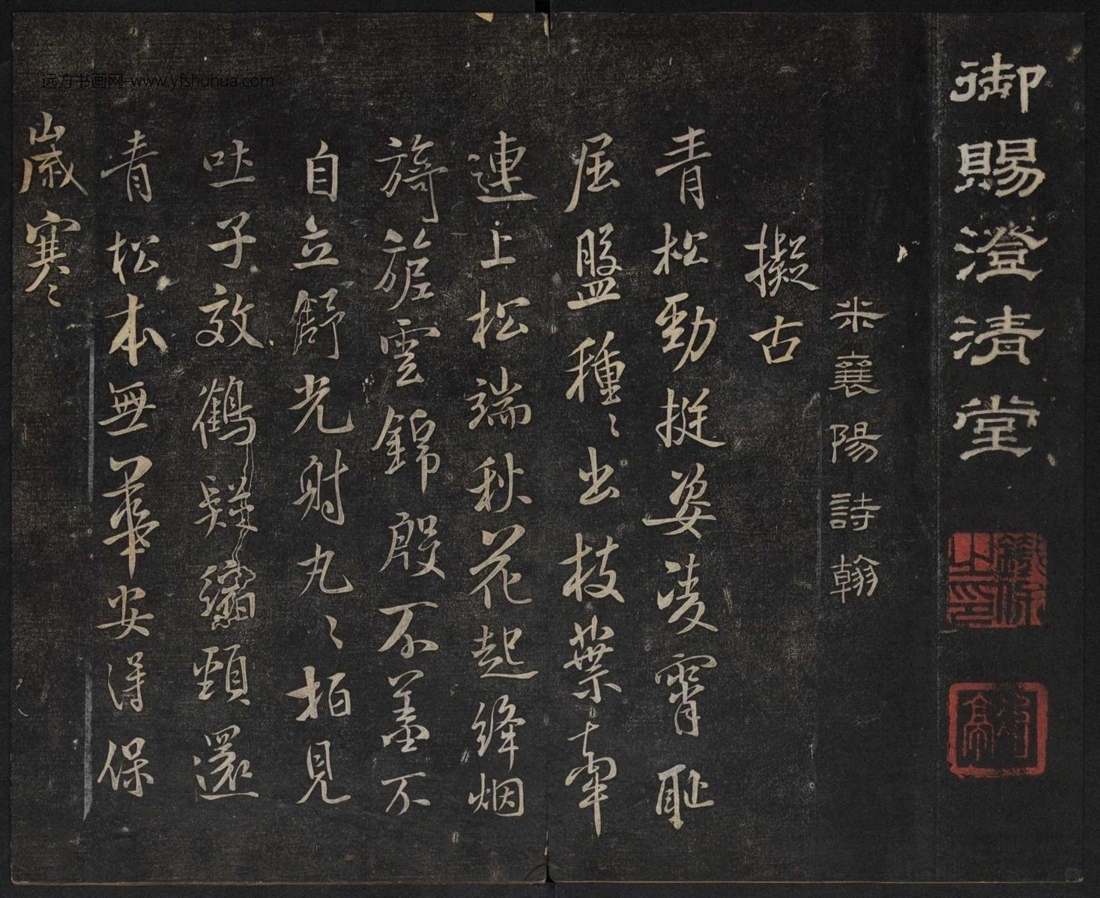 御賜澄清堂
米襄陽詩翰
擬古
青松勁挺姿凌霄恥
屈盤種〻出枝葉牽
連上松端秋花起絳烟
旖旎雲錦殷不羞不
自立舒光射丸〻栢見
吐子效鶴疑縮頸還
青松本無華安得保
歲寒〻
远方书画网 www.yfshuhua.com